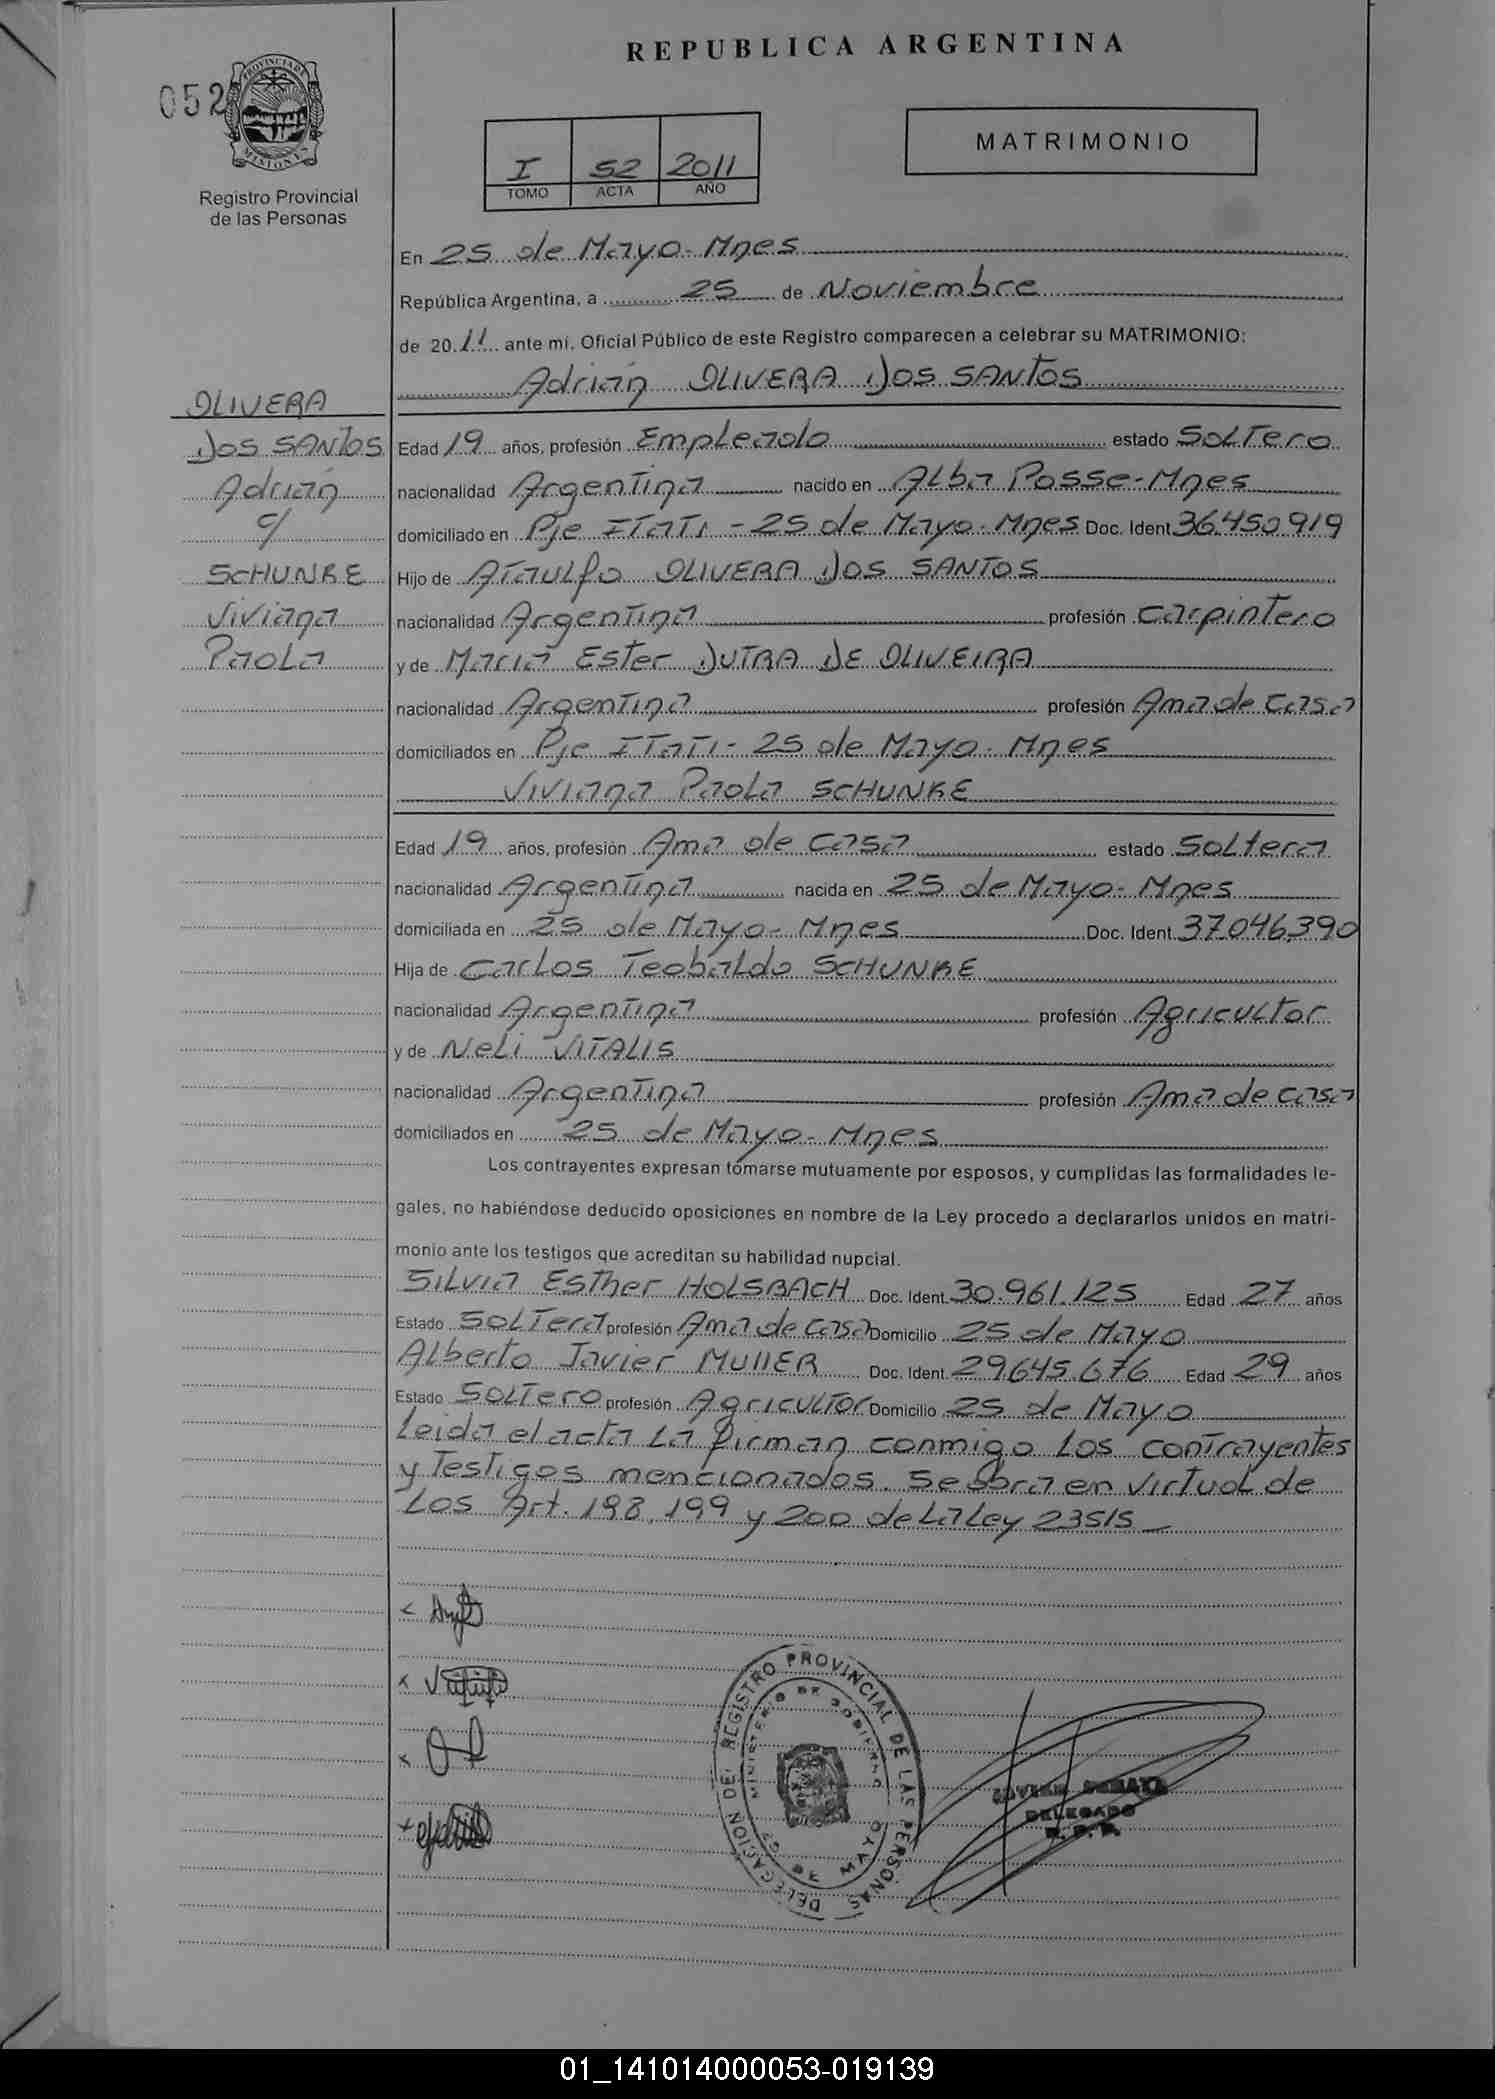 REPUBLICA ARGENTINA
052
PROVINCIA DE
MISIONES
Registro Provincial
de las Personas
I 52 2011
TOMO ACTA AÑO
MATRIMONIO
En 25 de Mayo-Mnes
República Argentina, a 25 de Noviembre
de 2011 ante mí, Oficial Público de este Registro comparecen a celebrar su MATRIMONIO:
Adrián OLIVERA DOS SANTOS
OLIVERA
DOS SANTOS
Adrián
c/
SCHUNKE
Viviana
Paola
Edad 19 años, profesión Empleado estado Soltero
nacionalidad Argentina nacido en Alba Posse-Mnes
domiciliado en Pje ITATI - 25 de Mayo-Mnes Doc. Ident. 36.450.919
Hijo de Ataulfo OLIVERA DOS SANTOS
nacionalidad Argentina profesión Carpintero
y de Maria Ester DUTRA DE OLIVEIRA
nacionalidad Argentina profesión Ama de Casa
domiciliados en Pje ITATI - 25 de Mayo-Mnes
Viviana Paola SCHUNKE
Edad 19 años, profesión Ama de Casa estado Soltera
nacionalidad Argentina nacida en 25 de Mayo-Mnes
domiciliada en 25 de Mayo-Mnes Doc. Ident. 37.046.390
Hija de Carlos Teobaldo SCHUNKE
nacionalidad Argentina profesión Agricultor
y de Neli VITALIS
nacionalidad Argentina profesión Ama de casa
domiciliados en 25 de Mayo-Mnes
Los contrayentes expresan tomarse mutuamente por esposos, y cumplidas las formalidades le-
gales, no habiéndose deducido oposiciones en nombre de la Ley procedo a declararlos unidos en matri-
monio ante los testigos que acreditan su habilidad nupcial.
Silvia Esther HOLSBACH Doc. Ident. 30.961.125 Edad 27 años
Estado Soltera profesión Ama de Casa Domicilio 25 de Mayo
Alberto Javier MULLER Doc. Ident. 29.645.676 Edad 29 años
Estado Soltero profesión Agricultor Domicilio 25 de Mayo
Leida el acta la firman conmigo los contrayentes
y Testigos mencionados. Se obra en virtual de
Los Art. 198, 199 y 200 de La Ley 23515
DELEGACION DEL REGISTRO PROVINCIAL DE LAS PERSONAS
MINISTERIO DE GOBIERNO
25 DE MAYO
DELEGADO
R. P. P.
01_141014000053-019139